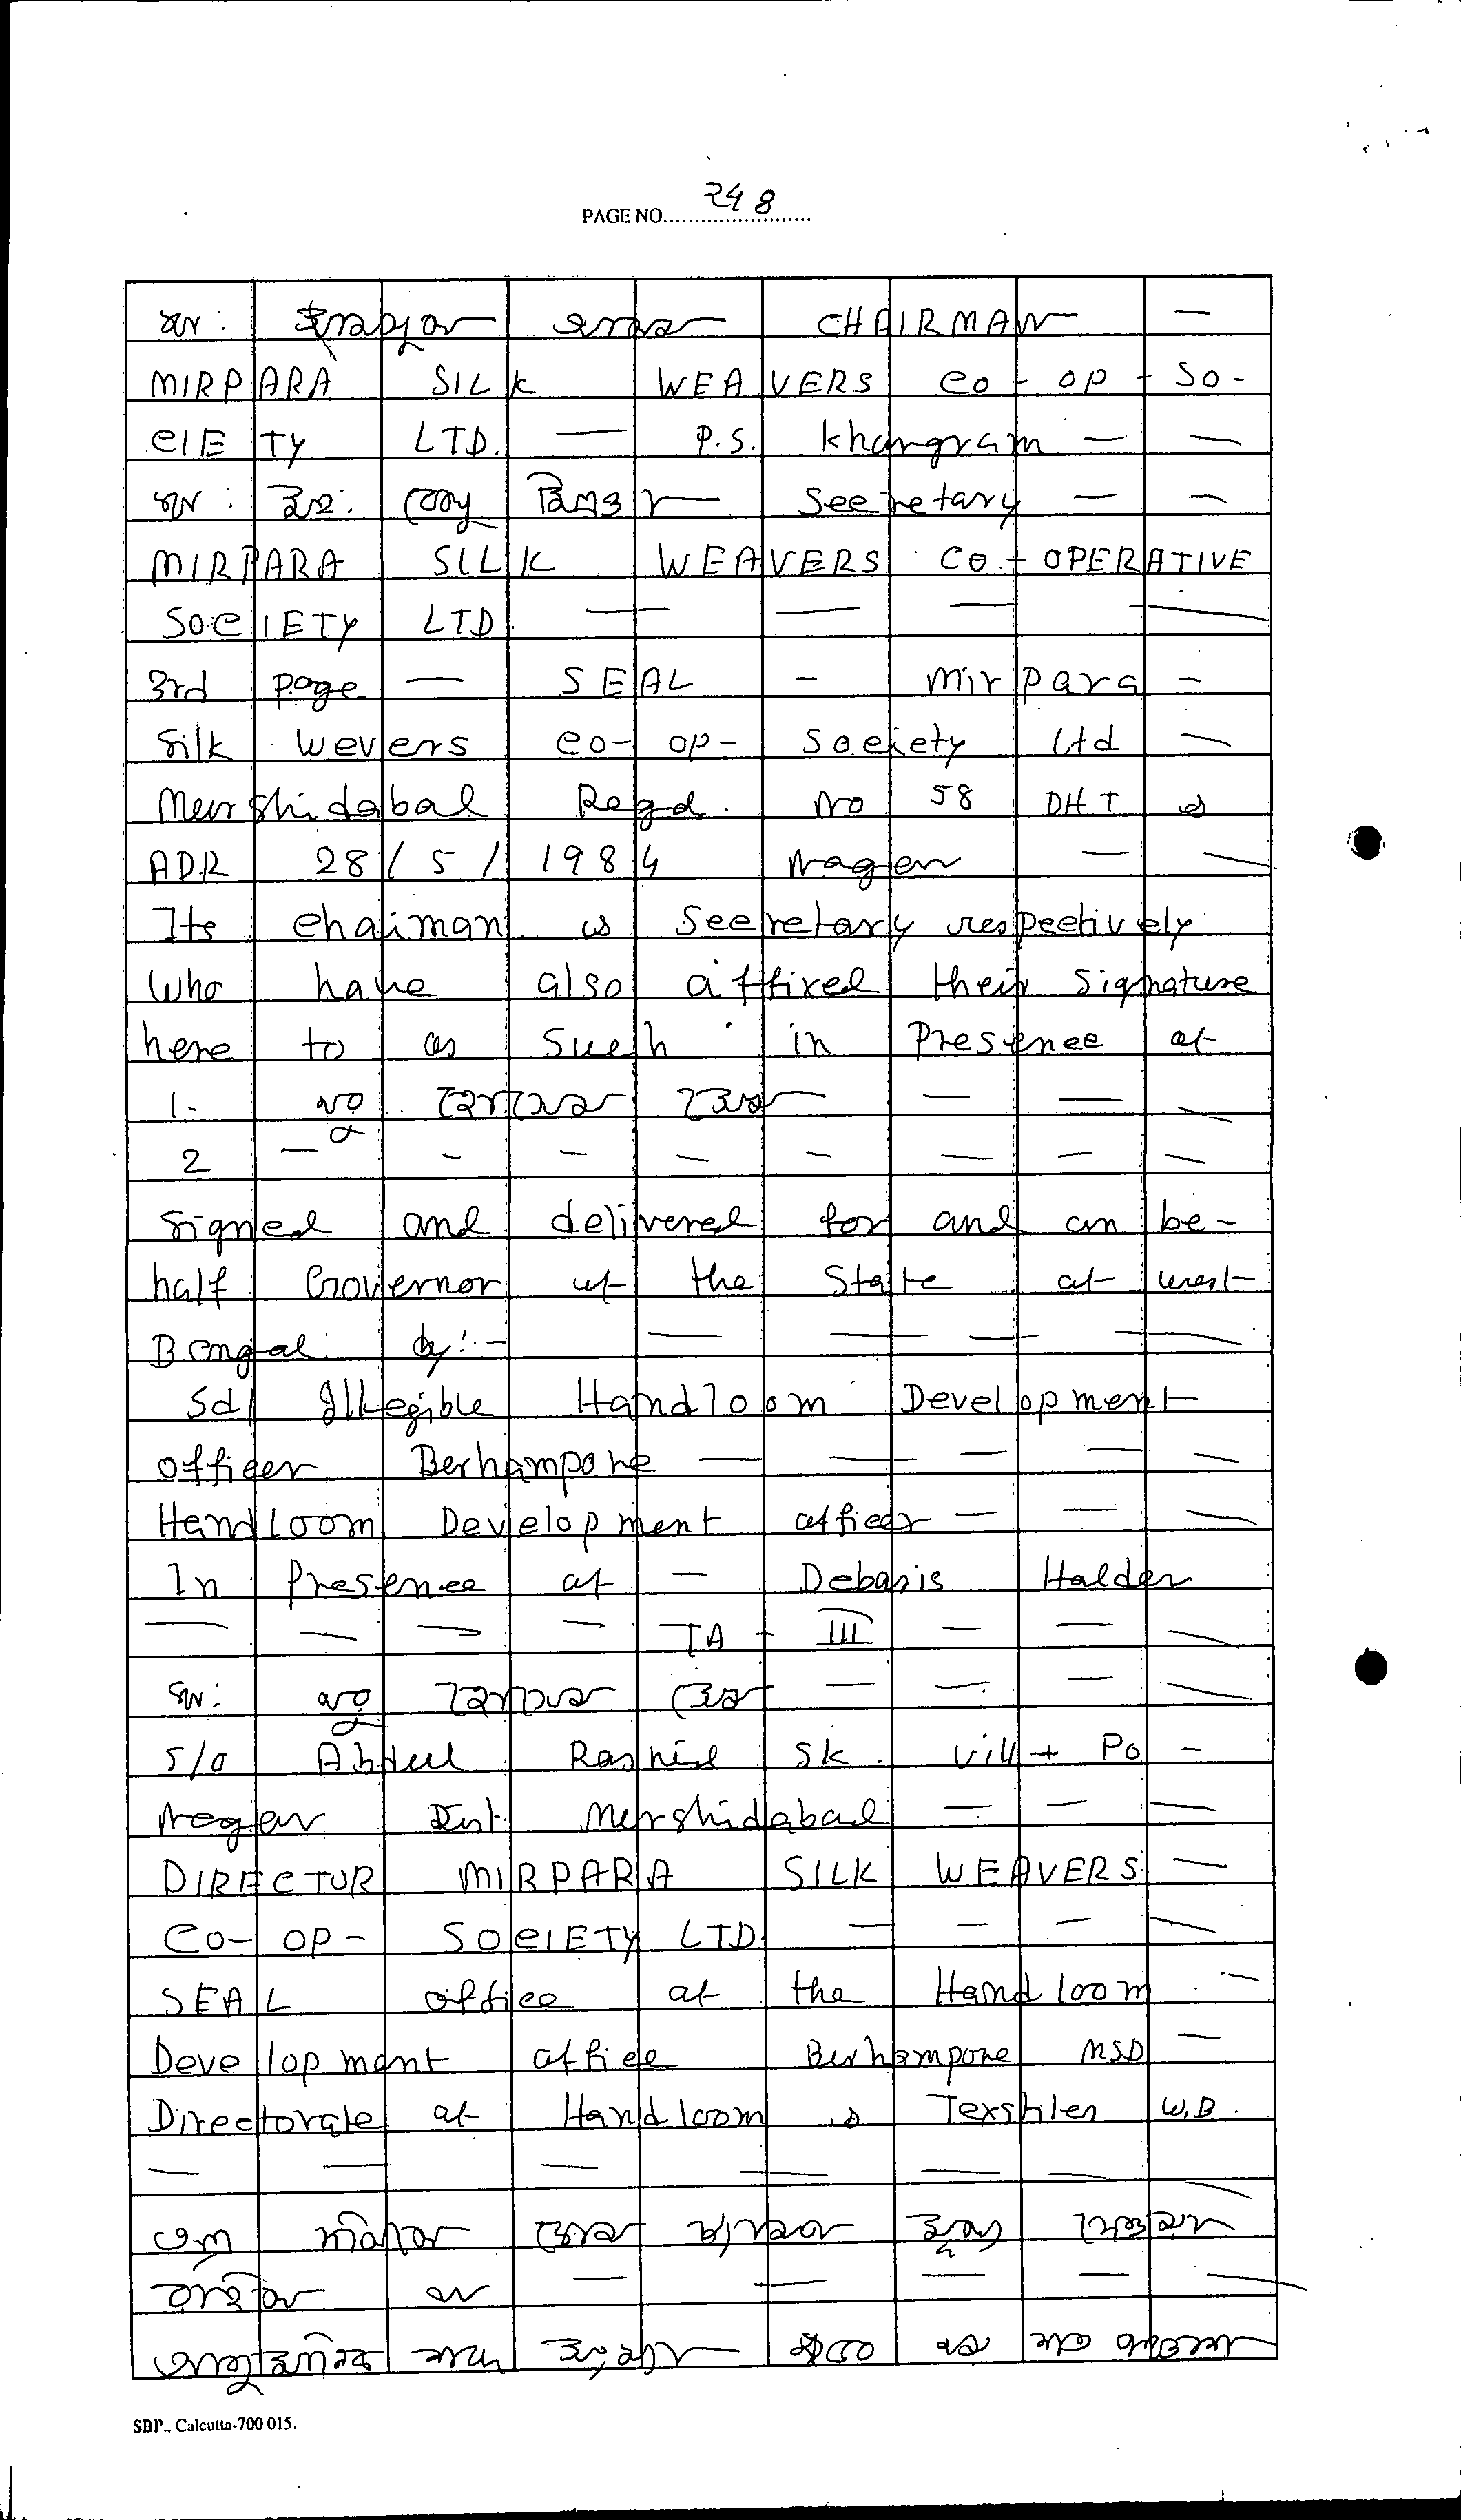 PAGE NO. 248
CHAIRMAN —
MIRPARA SILK WEAVERS CO - OP - SO-
CIETY LTD. — P.S. Khargram — —
Secretary — —
MIRPARA SILK WEAVERS CO - OPERATIVE
SOCIETY LTD — — — —
3rd page — SEAL - Mirpara -
Silk wevers co- op- Society Ltd —
Murshidabad Regd. No 58 DHT &
ADR 28/5/1984 Nagar — —
Its chaiman & Secretary respectively
Who have also affixed their Signature
here to as Such in Presence of
1. — — —
2 — - — — - — — —
Signed and delivered for and on be-
half Governor of the State of West
Bengal by:- — — — —
Sd/ Illegible Handloom Development
officer Berhampore — — — — —
Handloom Development officer — — —
In Presence of — Debasis Halder
— — — — TA - III — — —
— — — —
S/o Abdul Rashid Sk. Vill + Po -
Nagar Dist Murshidabad — — —
DIRECTUR MIRPARA SILK WEAVERS —
CO- OP- SOCIETY LTD. — — — —
SEAL office of the Handloom —
Development office Berhampore MSD —
Directorate of Handloom & Texstiles W.B.
— — — — — — —
— — — — —
SBP., Calcutta-700 015.